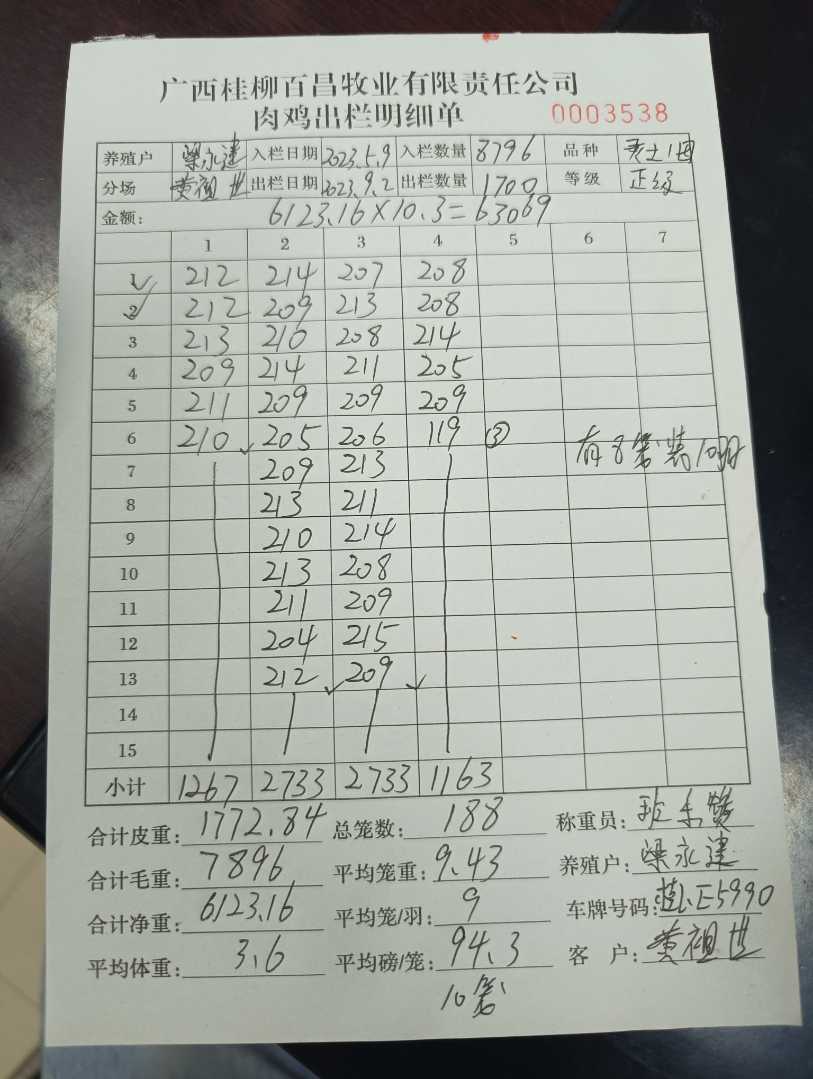 广西桂柳百昌牧业有限责任公司
肉鸡出栏明细单 0003538
养殖户 梁永建 入栏日期 2023.5.9 入栏数量 8796 品种
分场 黄祖世 出栏日期 2023.9.2 出栏数量 1700 等级 正级
金额: 6123.16×10.3=63069
1 2 3 4 5 6 7
1 212 214 207 208
2 212 209 213 208
3 213 210 208 214
4 209 214 211 205
5 211 209 209 209
6 210 205 206 119 ③ 有8笼装10羽
7 209 213
8 213 211
9 210 214
10 213 208
11 211 209
12 204 215
13 212 209
14
15
小计 1267 2733 2733 1163
合计皮重: 1772.84 总笼数: 188 称重员:
合计毛重: 7896 平均笼重: 9.43 养殖户: 梁永建
合计净重: 6123.16 平均笼/羽: 9 车牌号码: E5990
平均体重: 3.6 平均磅/笼: 94.3 客户: 黄祖世
10笼